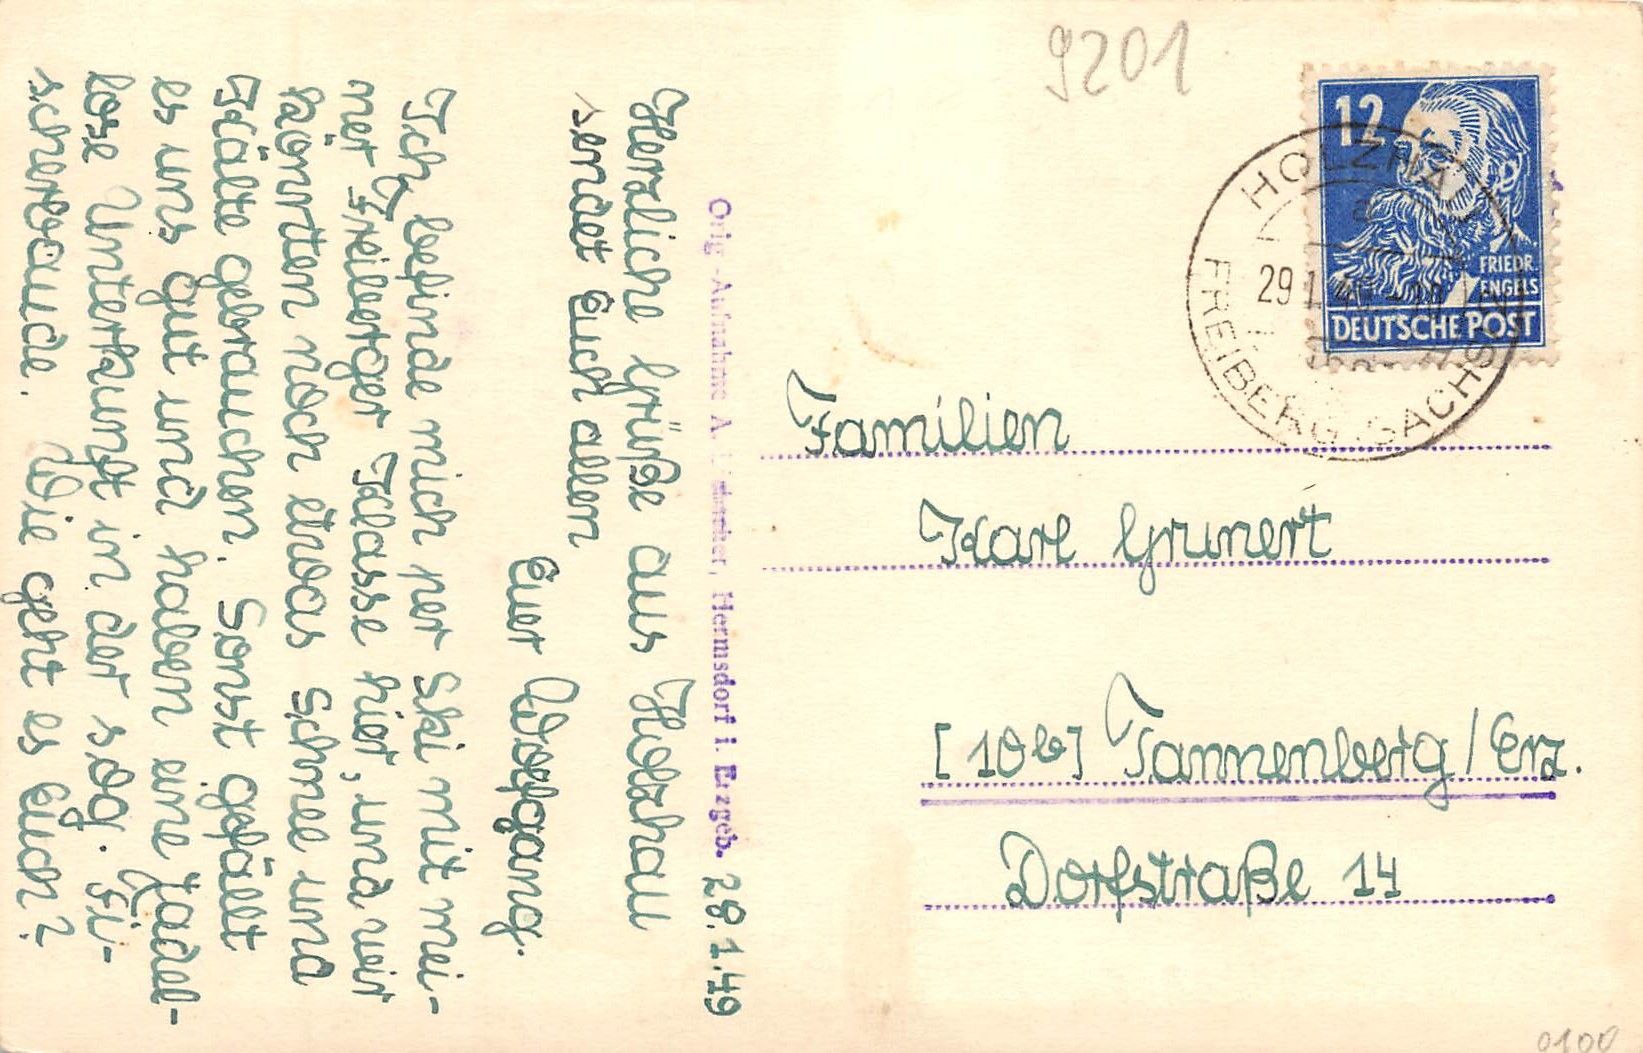 28.1.49
Herzliche Grüße aus Holzhau
sendet Euch allen
Euer Wolfgang.
Ich befinde mich per Ski mit mei-
ner Freiberger Klasse hier, und wir
könnten noch etwas Schnee und
Kälte gebrauchen. Sonst gefällt
es uns gut und haben eine tadel-
lose Unterkunft in der sog. Fi-
scherbaude. Wie geht es Euch?
Orig.-Aufnahme A. Hermsdorf i. Erzgeb.
9201
12
FRIEDR.
ENGELS
DEUTSCHE POST
HOLZHAU
a
29.1.49
FREIBERG SACHS
Familien
Karl Grunert
[10b] Tannenberg/Erz.
Dorfstraße 14
0100